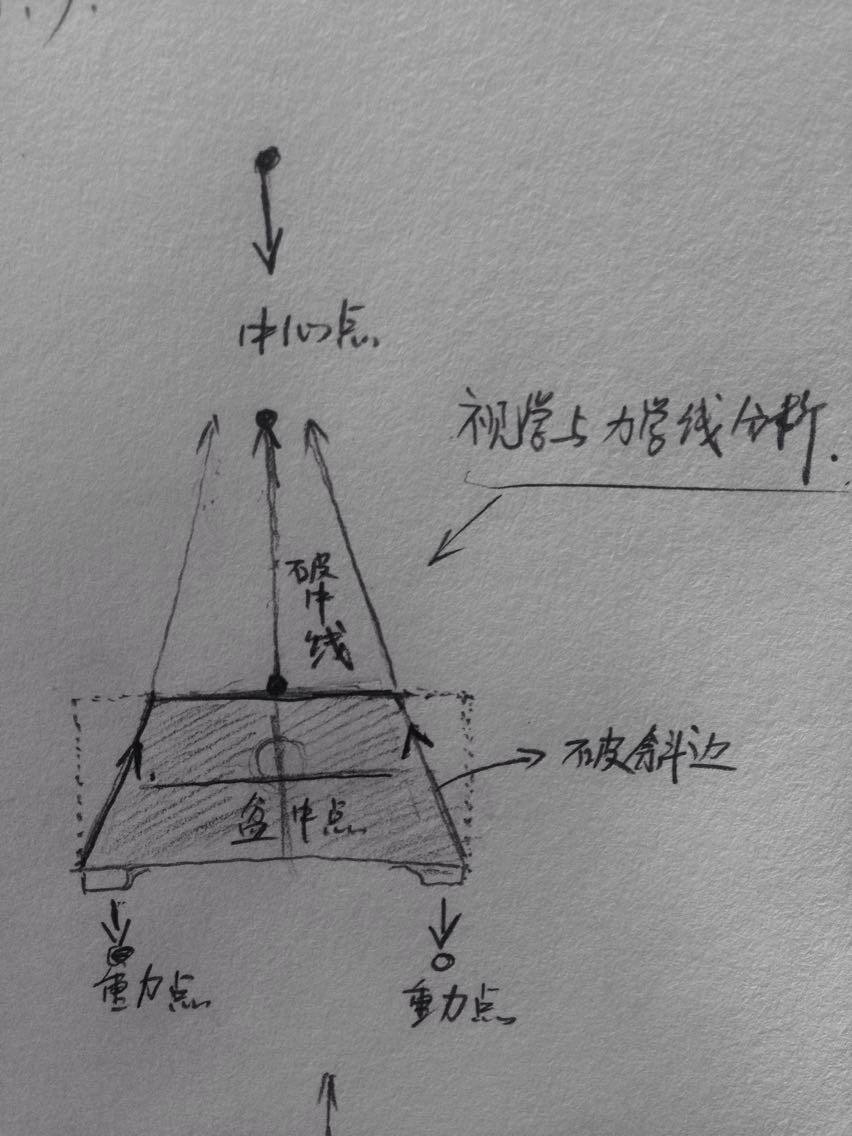 中心点
视学与力学线分析.
破中线
盆中点
破斜边
重力点
重力点